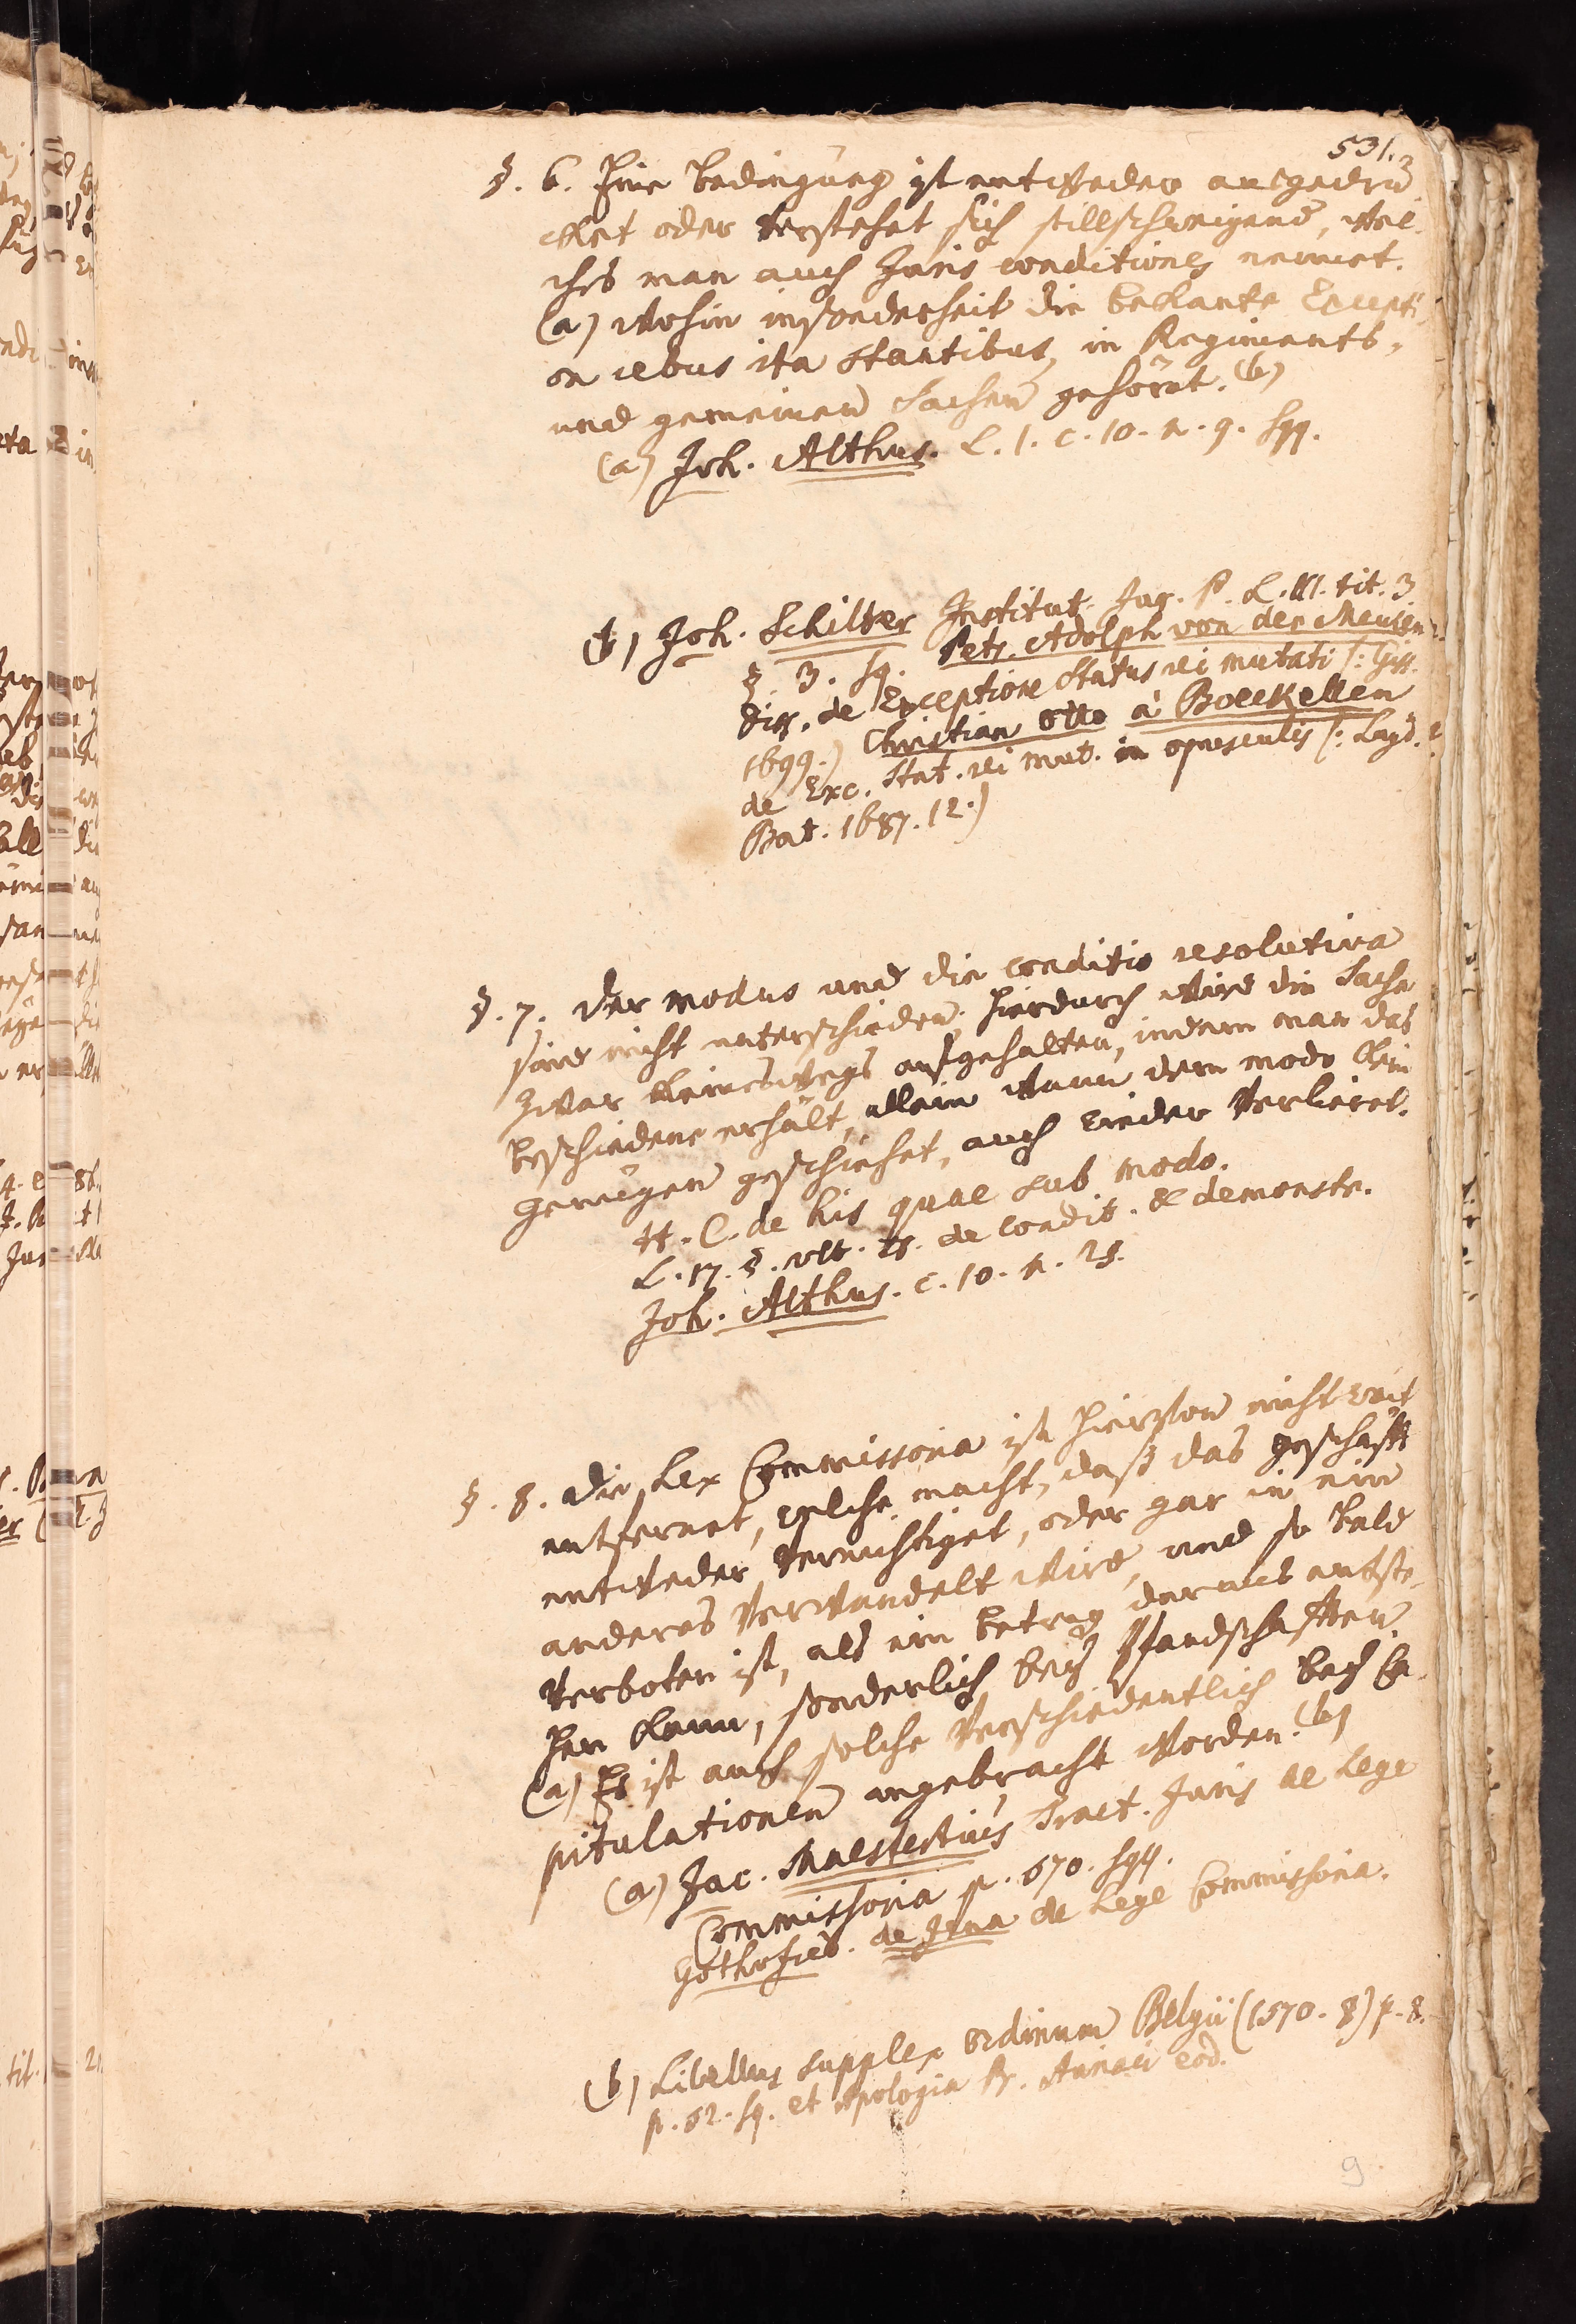 531.
§. 6. Eine Bedingung ist entweder ausgedrü
cket oder verstehet sich stillschweigend, wel-
ches man auch Juris conditiones nennet.
(a) Wohin insonderheit die bekante Excepti
on rebus ita stantibus, in Regiments-
und gemeinen Sachen gehöret. (b)
(a) Joh. Althus. L. 1. c. 10. n. 9. sqq.
(b) Joh. Schilter Institut. Jur. P. L. III. tit. 3
§. 3. sq. Petr. Adolph von der
Diss. de Exceptione Status rei mutati /: Giss.
1699.) Christian Otto à Boeckellen
de Exc. Stat. rei mut. in opusculis /: Lugd.
Bat. 1687. 12.)
§. 7. Der modus und die conditio resolutiva
sind nicht unterschieden; hierdurch wird die Sache
zwar keineswegs aufgehalten, indem man das
beschiedene erhält, allein wann dem modo kein
genügen geschiehet, auch wieder verlieret.
tt. C. de his quae sub modo.
L. 17. §. ult. ff. de condit. & demonstr.
Joh. Althus. c. 10. n. 28.
§. 8. Die Lex Commissoria ist hiervon nicht weit
entfernet, welche macht, daß das geschäfft
entweder vernichtiget, oder gar in ein
anderes verwandelt wird, und so bald
verboten ist, als ein betrug daraus entste-
hen kann, sonderlich bey Pfandschafften.
(a) Es ist auch solche verschiedentlich bey Ca-
pitulationen angebracht worden. (b)
(a) Jac. Maestertius Tract. Juris de Lege
Commissoria p. 570. sqq.
Gothofred. de Jena de Lege Commissoria.
(b) Libellus supplex ordinum Belgii (1570. 8) p. 8.
p. 52. sq. et Apologia Pr. Auriaci eod.
9.